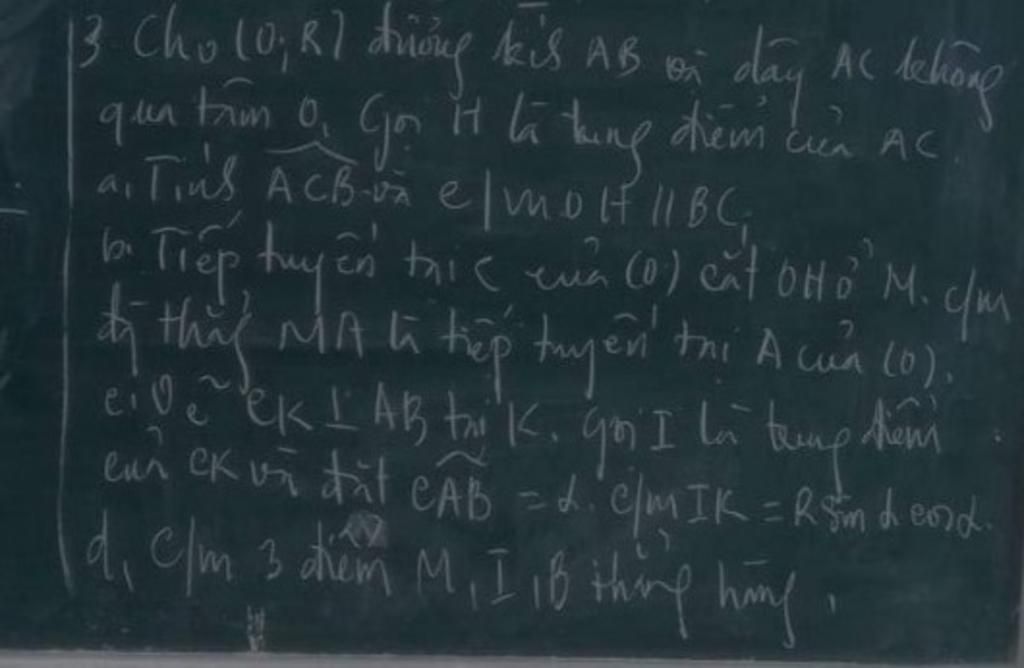 3 Cho (O; R) đường kính AB và dây AC không
qua tâm O, Gọi H là trung điểm của AC.
a, Tính ACB và c/m OH // BC,
b. Tiếp tuyến tại C của (O) cắt OH ở M. c/m
đg thẳg MA là tiếp tuyến tại A của (O),
c, Vẽ CK ⊥ AB tại K. Gọi I là trung điểm
của CK và đặt CAB = α. C/m IK = R sin α cos α.
d, C/m 3 điểm M, I, B thẳng hàng,